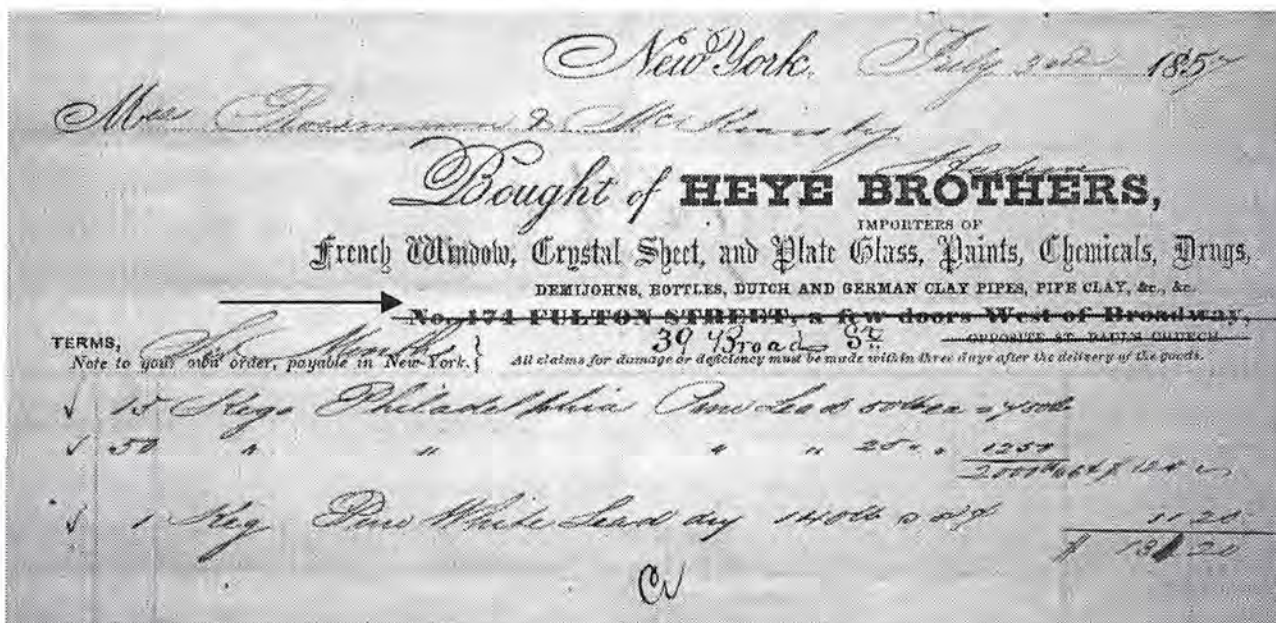 New York, July 3rd 1857
Mess & Mc
Hudson
Bought of HEYE BROTHERS,
IMPORTERS OF
French Window, Crystal Sheet, and Plate Glass, Paints, Chemicals, Drugs,
DEMIJOHNS, BOTTLES, DUTCH AND GERMAN CLAY PIPES, PIPE CLAY, &c., &c.
No. 174 FULTON STREET, a few doors West of Broadway,
39 Broad St. OPPOSITE ST. PAUL'S CHURCH.
TERMS, Six Months
Note to your own order, payable in New-York. } All claims for damage or deficiency must be made within three days after the delivery of the goods.
✓ 15 Kegs Philadelphia Pure Lead 50lb ea 750lb
✓ 50 " " " " 25 " " 1250
2000lb
✓ 1 Keg Pure White Lead dry 140lb 11 20
$ 131 20